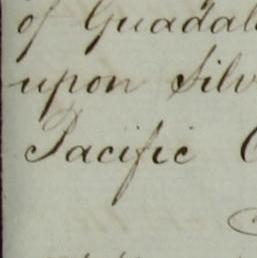 of Guadal
upon Silv
Pacific